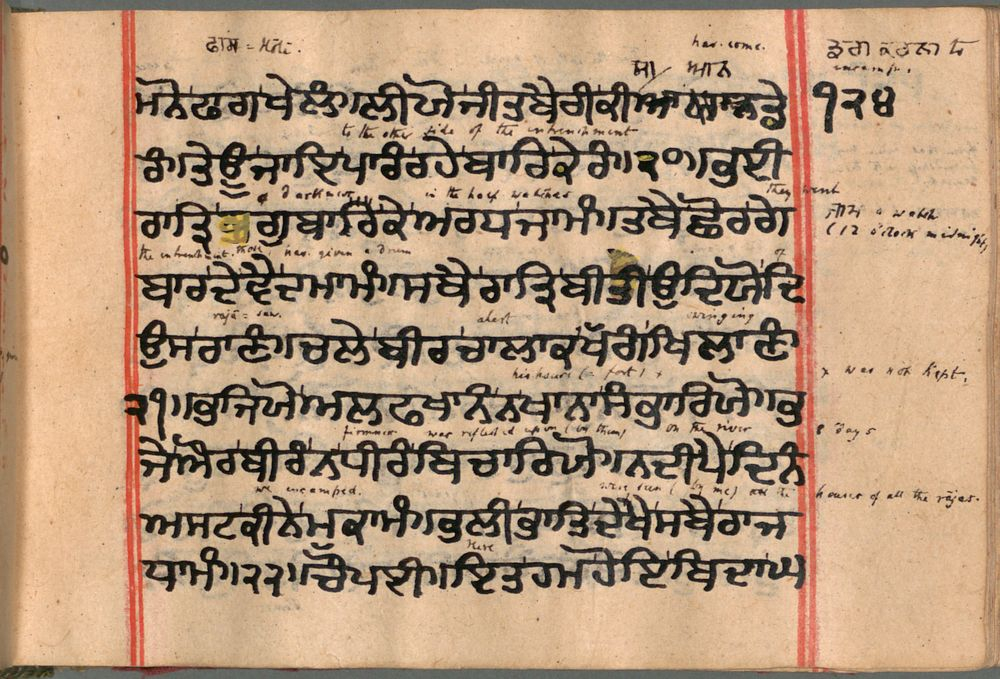 ਫਾਗ = Holi.
has come.
ਡੇਰਾ ਕਰਨਾ to
encamp.
ਸਾ/ ਆਨ
ਮਨੋ ਫਾਗ ਖੇਲੰ।ਲੀਯੋ ਜੀਤ ਬੈਰੀ ਕੀਆ ਆਨ ਡੇ
੧੨੪
to the other side of the entrenchment
ਰੰ।ਤੇਊ ਜਾਇ ਪਾਰੰ ਰਹੇ ਬਾਰਿ ਕੇਰੰ।੨੦॥ਭਈ
of darkness in the half watches they went
ਰਾਤ੍ਰਿ ਗੁਬਾਰਿ ਕੇ ਅਰਧ ਜਾਮੰ।ਤਬੈ ਛੋਰਗੇ
ਜਾਮ a watch
(12 o'clock midnight)
the entrenchment. those, has given a drum of
ਬਾਰ ਦੇਵੈ ਦਮਾਮੰ।ਸਬੈ ਰਾਤ੍ਰਿ ਬੀਤੀ ਉਦਿਯੋ ਦਿ
rājā = sun. alert swinging
ਉਸਰਾਣੰ।ਚਲੇ ਬੀਰ ਚਾਲਾਕ ਖੱਗੰ ਖਿਲਾਣੰ
his house (= fort) x
x was not kept,
੨੧॥ਭਜਿਯੋ ਅਲਫਖਾਨੰ ਨ ਖਾਨਾ ਸੰਭਾਰਿਯੋ।ਭ
firmness was reflected upon (by them) on the river
8 days
ਜੇ ਔਰ ਬੀਰੰ ਨ ਧੀਰੰ ਬਿਚਾਰਿਯੋ।ਨਦੀ ਪੈ ਦਿਨੰ
we encamped. were seen (by me) all the houses of all the rājas.
ਅਸਟ ਕੀਨੇ ਮੁਕਾਮੰ।ਭਲੀ ਭਾਤਿ ਦੇਖੇ ਸਬੈ ਰਾਜ
Here
ਧਾਮੰ।੨੨॥ਚੌਪਈ।ਇਤ ਹਮ ਹੋਇ ਬਿਦਾ ਘ